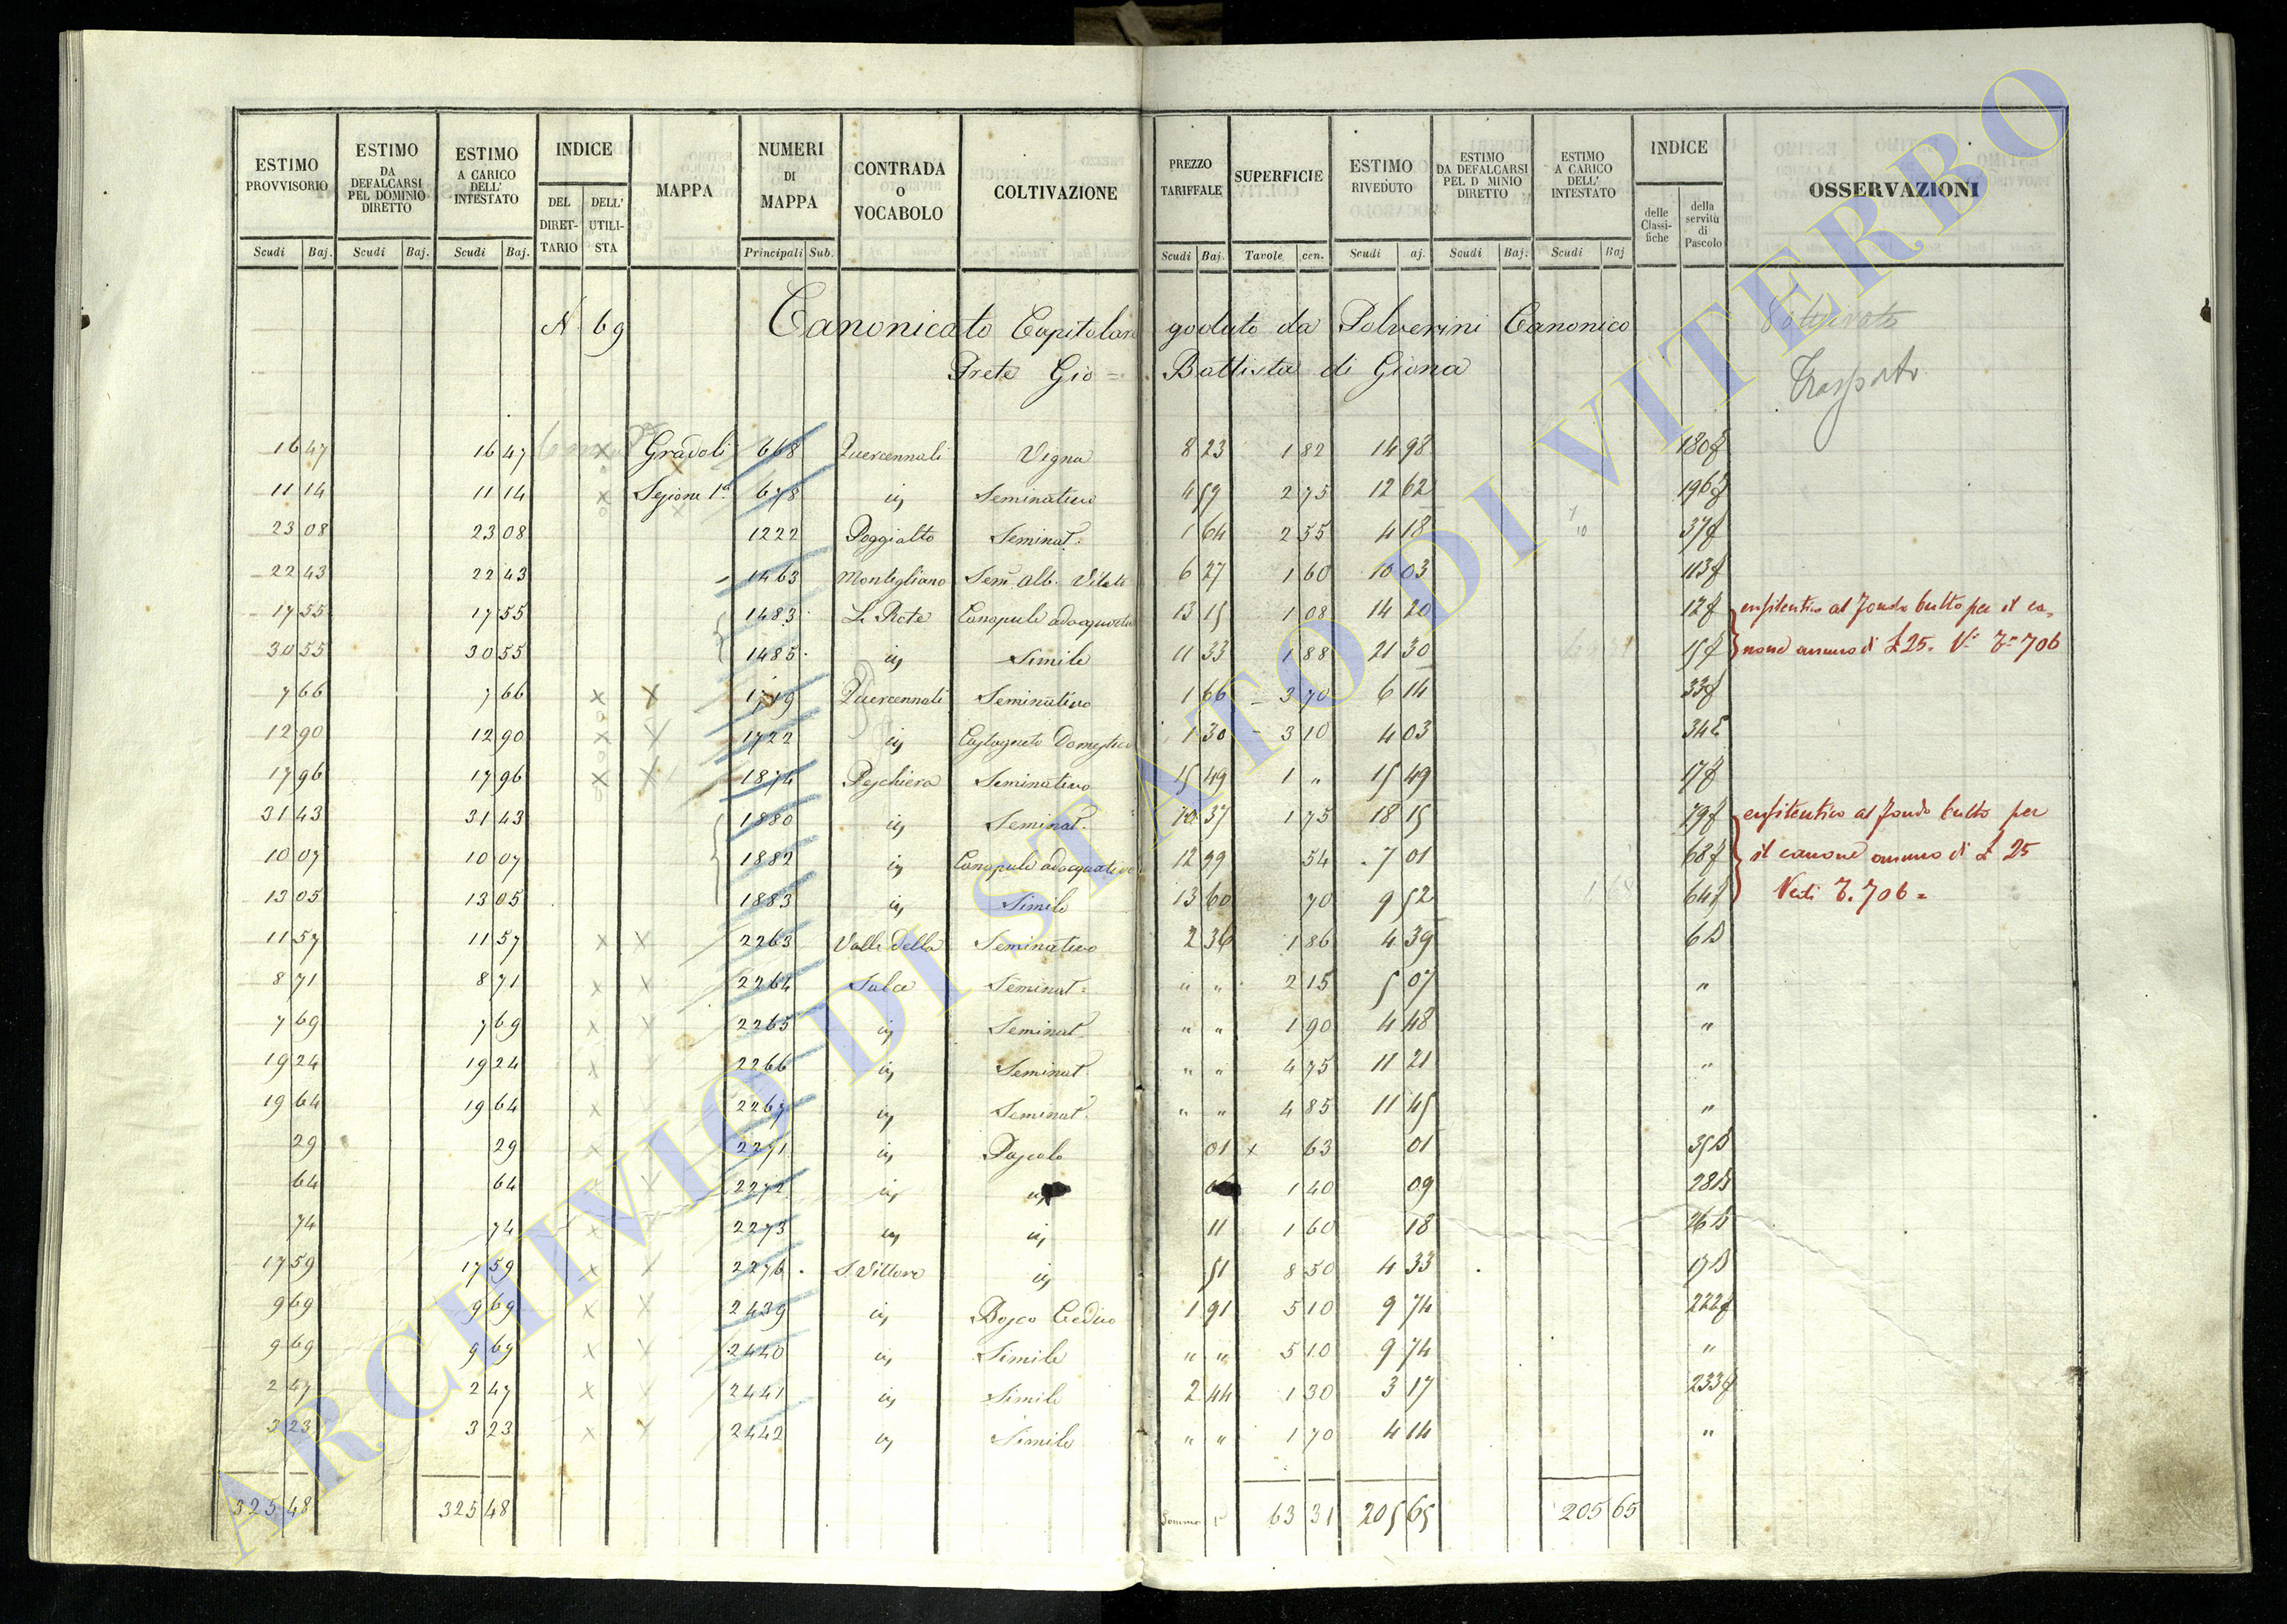 ESTIMO PROVVISORIO ESTIMO DA DEFALCARSI PEL DOMINIO DIRETTO ESTIMO A CARICO DELL' INTESTATO INDICE DEL DIRET-TARIO DELL' UTILI-STA MAPPA NUMERI DI MAPPA CONTRADA O VOCABOLO COLTIVAZIONE PREZZO TARIFFALE SUPERFICIE ESTIMO RIVEDUTO ESTIMO DA DEFALCARSI PEL D MINIO DIRETTO ESTIMO A CARICO DELL' INTESTATO INDICE delle Classi-fiche della servitù di Pascolo OSSERVAZIONI
Scudi Baj. Scudi Baj. Scudi Baj. Principali Sub. Scudi Baj. Tavole cen. Scudi aj. Scudi Baj. Scudi Baj
N. 69 Canonicato Capitolare goduto da Polverini Canonico
Prete Gio= Battista di Giona Trasporto
16 47 16 47 x Gradoli 668 Quercennali Vigna 8 23 1 82 14 98 180f
11 14 11 14 x Sezione 1a 678 id Seminativo 4 59 2 75 12 62 196f
23 08 23 08 1222 Poggialto Seminat. 1 64 2 55 4 18 37f
22 43 22 43 1463 Montigliano Sem Alb. Vitato 6 27 1 60 10 03 113f
17 55 17 55 1483 Le Rote Canapule adacquativo 13 15 1 08 14 20 12f enfiteutico al Fondo Culto per il ca=
30 55 30 55 1485 id Simile 11 33 1 88 21 30 15f none annuo di £ 25. Vi T= 706
7 66 7 66 x x 1719 Quercennali Seminativo 1 66 3 70 6 14 33f
12 90 12 90 x x 1722 id Castagneto Domestico 1 30 3 10 4 03 34E
17 96 17 96 x x 1874 Peschiera Seminativo 15 49 1 " 15 49 17f
31 43 31 43 1880 id Seminat. 10 37 1 75 18 15 79f enfiteutico al Fondo Culto per
10 07 10 07 1882 id Canapule adacquativo 12 99 54 7 01 68f il canone annuo di £ 25
13 05 13 05 1883 id Simile 13 60 70 9 52 64f Vedi T. 706=
11 57 11 57 x x 2263 Valle della Seminativo 2 36 1 86 4 39 6D
8 71 8 71 x x 2264 Salce Seminat= " " 2 15 5 07 "
7 69 7 69 x x 2265 id Seminat " " 1 90 4 48 "
19 24 19 24 x x 2266 id Seminat " " 4 75 11 21 "
19 64 19 64 x x 2267 id Seminat. " " 4 85 11 45 "
29 29 x x 2271 id Pascolo 01 x 63 01 35D
64 64 x x 2272 id id 1 40 09 28D
74 74 x x 2273 id id 11 1 60 18 26D
17 59 17 59 x x 2276 S. Vittore id 51 8 50 4 33 17D
9 69 9 69 x x 2439 id Bosco Ceduo 1 91 5 10 9 74 222f
9 69 9 69 x x 2440 id Simile " " 5 10 9 74 "
2 47 2 47 x x 2441 id Simile 2 44 1 30 3 17 233f
3 23 3 23 x x 2442 id Simile " " 1 70 4 14 "
325 48 325 48 Somma 63 31 205 65 205 65
ARCHIVIO DI STATO DI VITERBO